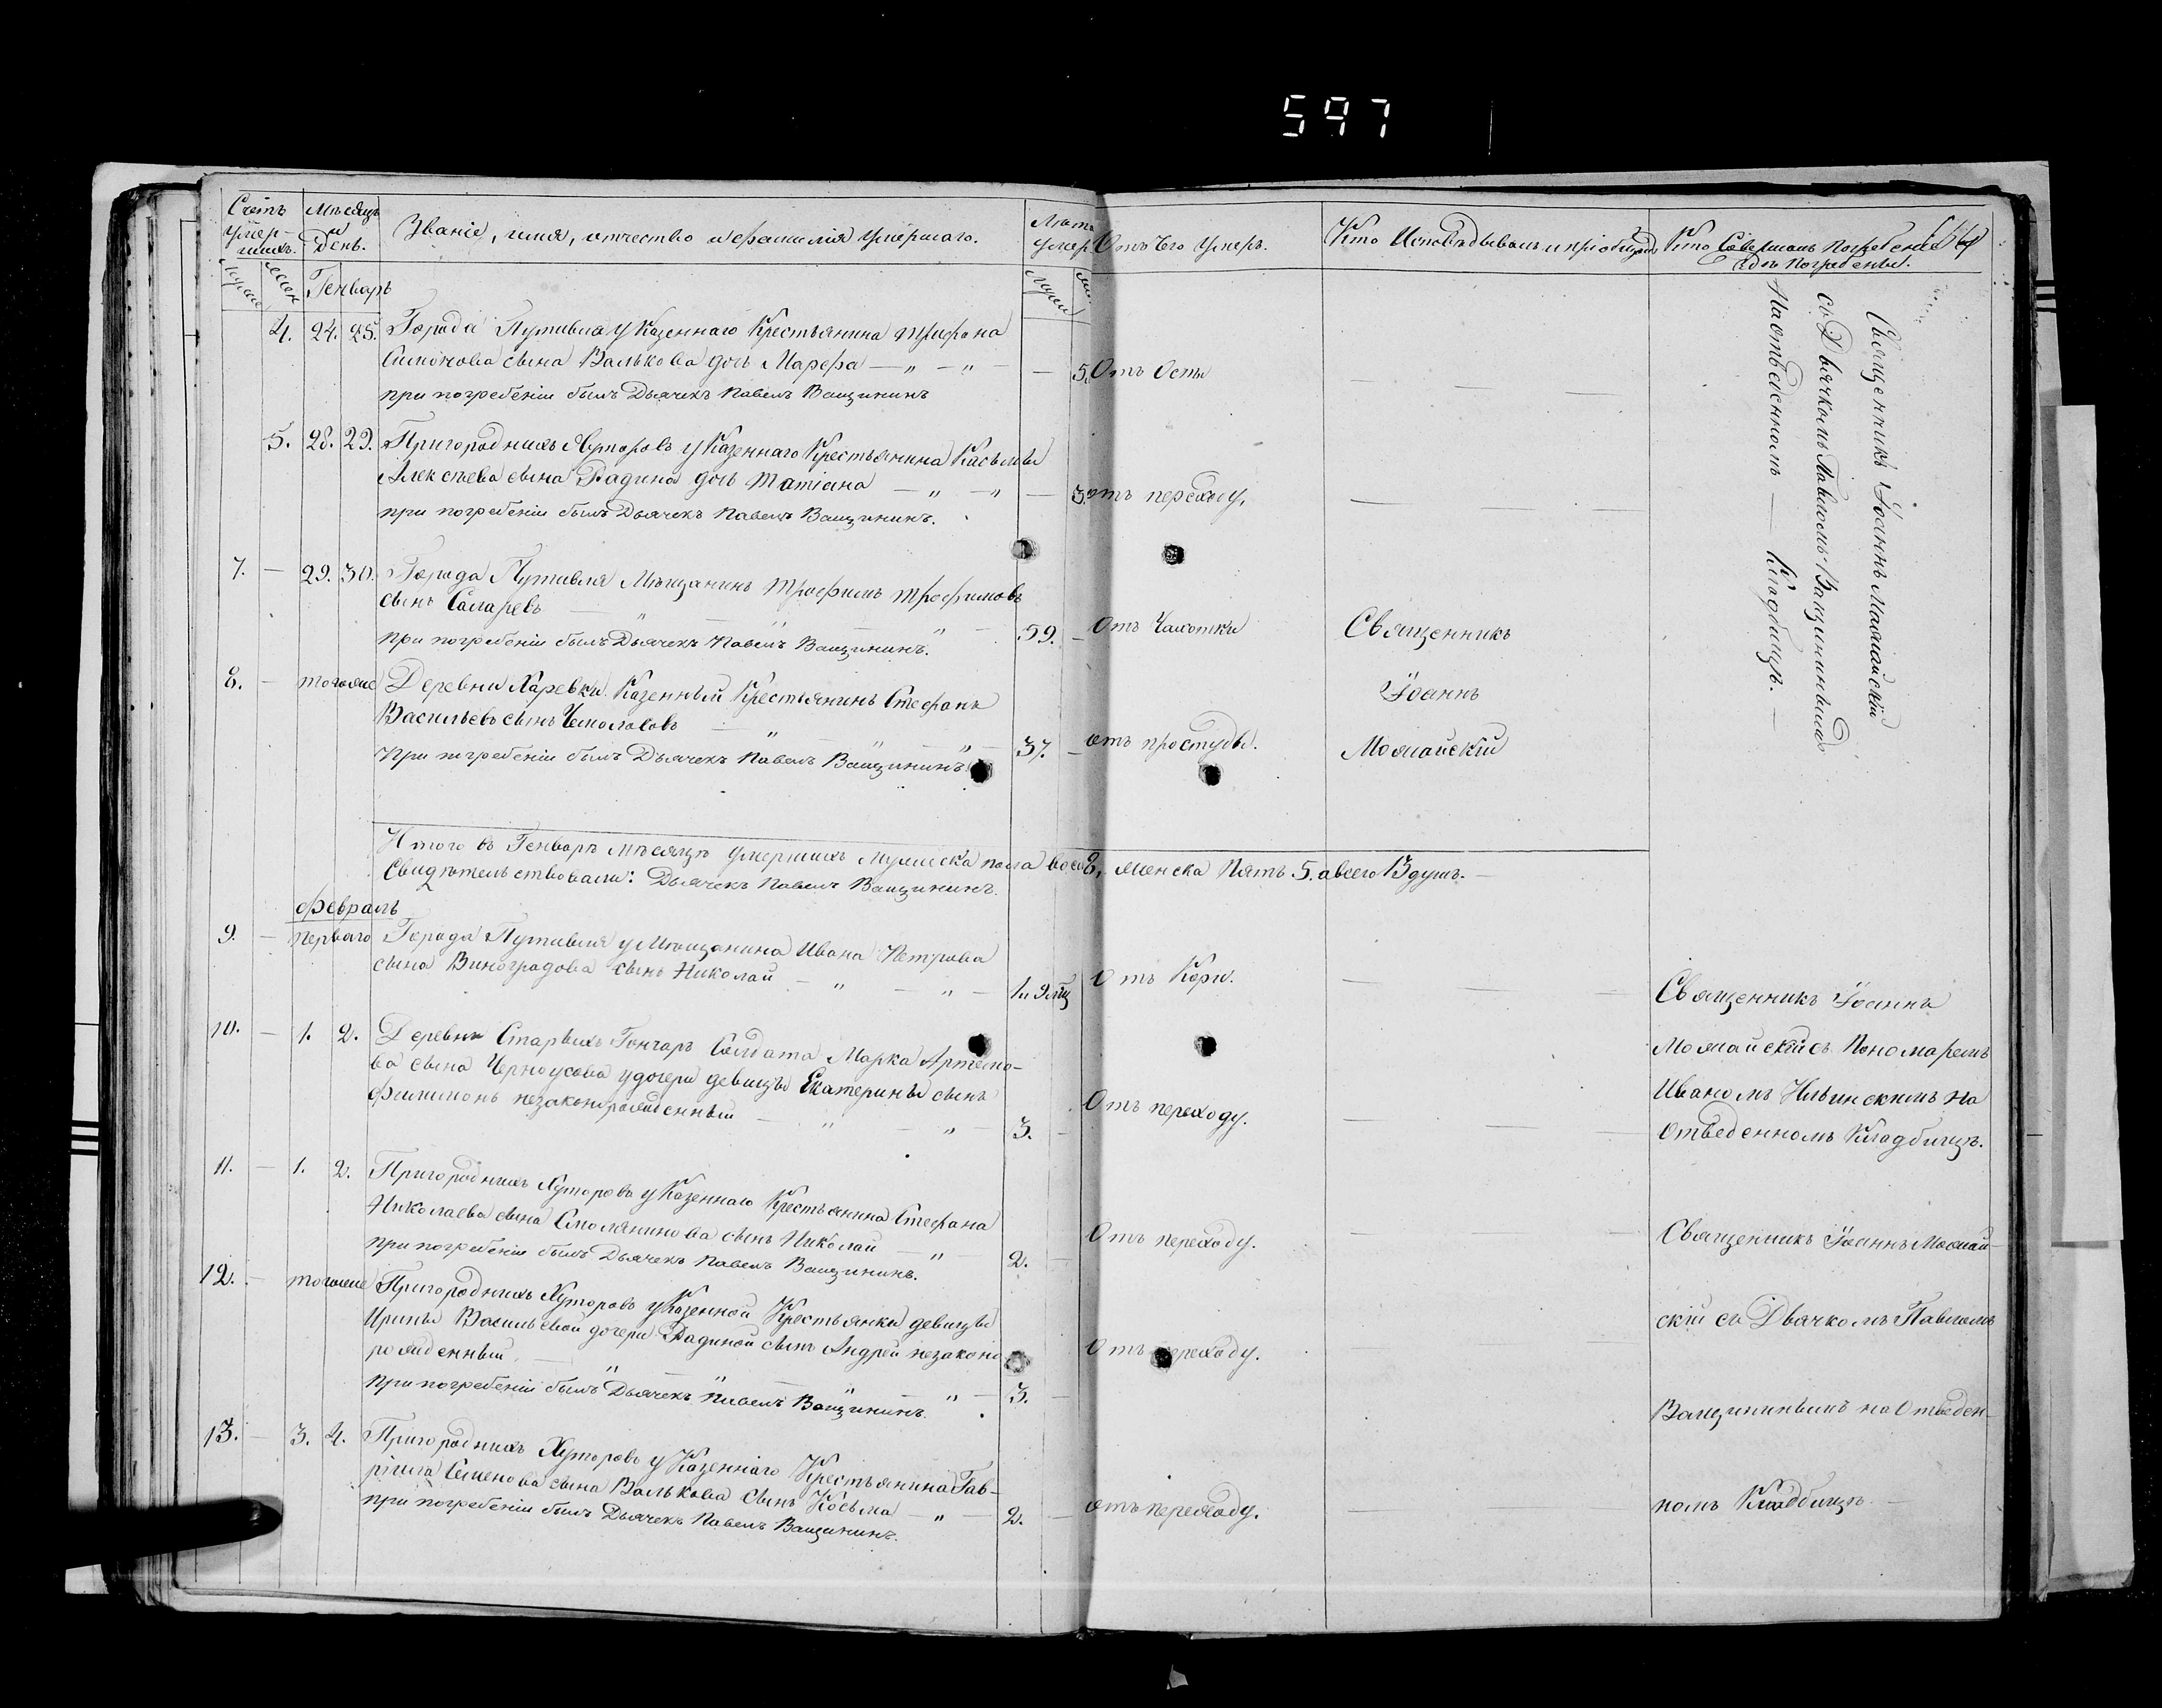 597
Счетъ умер-шихъ.
Мѣсяцъ и День.
Званіе, имя, отчество и фамилія умершаго.
Лѣта умер.
Отъ Чего умеръ.
Кто Исповѣдывалъ и пріобщалъ
Кто Совершалъ Погребеніе
гдѣ погребены.
Генварь
4. 24. 25. Города Путивля у Казеннаго Крестьянина Трифона
Симонова сына Валькова дочь Марфа — „ — „ — — 5. Отъ Оспы
при погребеніи былъ Дьячекъ Павелъ Ващининъ
5. 28. 29. Пригороднихъ Хуторовъ у Казеннаго Крестьянина Касьяна
Алексѣева сына Радина дочь Татіана — „ — „ — 3. отъ переходу.
при погребеніи былъ Дьячекъ Павелъ Ващининъ.
7. — 29. 30. Города Путивля Мѣщанинъ Трофимъ Трофимовъ
сынъ Сапаревъ — „ — „ — „ — 59. — Отъ Чахотки
при погребеніи былъ Дьячекъ Павелъ Ващининъ.
8. — тогоже Деревни Харевки Казенный Крестьянинъ Стефанъ
Васильевъ сынъ Чемолововъ — „ — „ — „ — 37. — отъ простуды.
При погребеніи былъ Дьячекъ Павелъ Ващининъ.
Священникъ
Іоаннъ
Можайскій
Священникъ Іоаннъ Можайскій
съ Дьячкомъ Павломъ Ващининымъ
На отведенномъ — Кладбищѣ. —
Итого въ Генварѣ мѣсяцѣ умершихъ мужеска пола восемь 8, женска Пять 5. а всего 13 душъ. —
Свидѣтельствовали: Дьячекъ Павелъ Ващининъ.
Февраль
9. — перваго Города Путивля у Мѣщанина Ивана Петрова
сына Виноградова сынъ Николай — „ — „ — 1 и 9 мц Отъ Кори.
10. — 1. 2. Деревни Старыхъ Гончаръ Солдата Марка Артемо-
ва сына Черноусова у дочери девицы Екатерины сынъ
Филимонъ незаконорожденный — „ — „ — 3. — Отъ переходу.
Священникъ Іоаннъ
Можайскій съ Пономаремъ
Иваномъ Ильинскимъ на
отведенномъ Кладбищѣ.
11. — 1. 2. Пригороднихъ Хуторовъ у Казеннаго Крестьянина Стефана
Николаева сына Смолянинова сынъ Николай — „ — 2. — Отъ переходу.
при погребеніи былъ Дьячекъ Павелъ Ващининъ.
12. — тогоже Пригороднихъ Хуторовъ у Казенной Крестьянки девицы
Ирины Васильевой дочери Радиной сынъ Андрей незаконо
рожденный. — „ — „ — „ — 3. — Отъ переходу.
при погребеніи былъ Дьячекъ Павелъ Ващининъ.
13. — 3. 4. Пригороднихъ Хуторовъ у Казеннаго Крестьянина Гав-
ріила Семенова сына Валькова сынъ Косьма — „ — 2. — отъ переходу.
при погребеніи былъ Дьячекъ Павелъ Ващининъ.
Священникъ Іоаннъ Можай-
скій съ Дьячкомъ Павломъ
Ващининымъ на Отведен-
номъ Кладбищѣ. —